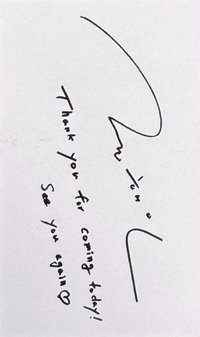 Thank you for coming today!
See you again♡